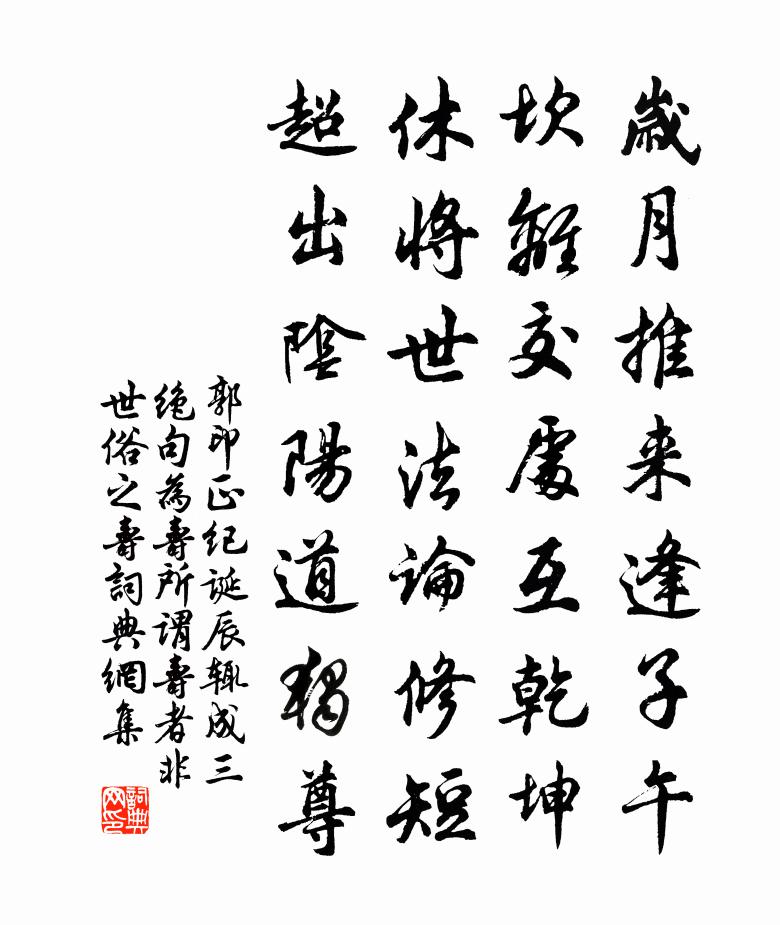 歲月推来逢子午
坎離交處互乾坤
休將世法論修短
超出陰陽道獨尊
郭印正纪诞辰辄成三
绝句為壽所谓壽者非
世俗之壽詞典網集
詞典网印